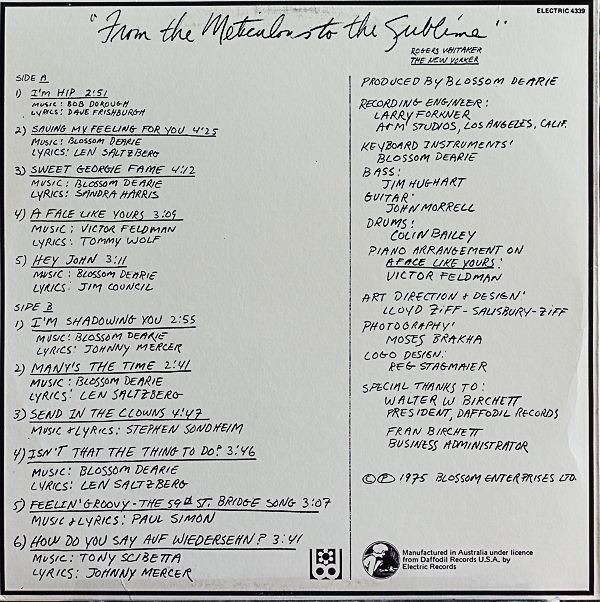 ELECTRIC 4339
"From the Meticulous to the Sublime"
ROGERS WHITAKER
THE NEW YORKER
SIDE A
1) I'M HIP 2:51
MUSIC: BOB DOROUGH
LYRICS: DAVE FRISHBURGH
2) SAVING MY FEELING FOR YOU 4:25
MUSIC: BLOSSOM DEARIE
LYRICS: LEN SALTZBERG
3) SWEET GEORGIE FAME 4:12
MUSIC: BLOSSOM DEARIE
LYRICS: SANDRA HARRIS
4) A FACE LIKE YOURS 3:09
MUSIC: VICTOR FELDMAN
LYRICS: TOMMY WOLF
5) HEY JOHN 3:11
MUSIC: BLOSSOM DEARIE
LYRICS: JIM COUNCIL
SIDE B
1) I'M SHADOWING YOU 2:55
MUSIC: BLOSSOM DEARIE
LYRICS: JOHNNY MERCER
2) MANY'S THE TIME 2:41
MUSIC: BLOSSOM DEARIE
LYRICS: LEN SALTZBERG
3) SEND IN THE CLOWNS 4:47
MUSIC & LYRICS: STEPHEN SONDHEIM
4) ISN'T THAT THE THING TO DO? 3:46
MUSIC: BLOSSOM DEARIE
LYRICS: LEN SALTZBERG
5) FEELIN' GROOVY - THE 59th ST. BRIDGE SONG 3:07
MUSIC & LYRICS: PAUL SIMON
6) HOW DO YOU SAY AUF WIEDERSEHN? 3:41
MUSIC: TONY SCIBETTA
LYRICS: JOHNNY MERCER
PRODUCED BY BLOSSOM DEARIE
RECORDING ENGINEER:
LARRY FORKNER
A&M STUDIOS, LOS ANGELES, CALIF.
KEYBOARD INSTRUMENTS:
BLOSSOM DEARIE
BASS:
JIM HUGHART
GUITAR:
JOHN MORRELL
DRUMS:
COLIN BAILEY
PIANO ARRANGEMENT ON
A FACE LIKE YOURS:
VICTOR FELDMAN
ART DIRECTION & DESIGN:
LLOYD ZIFF - SALISBURY-ZIFF
PHOTOGRAPHY:
MOSES BRAKHA
LOGO DESIGN:
REG STAGMAIER
SPECIAL THANKS TO:
WALTER W BIRCHETT
PRESIDENT, DAFFODIL RECORDS
FRAN BIRCHETT
BUSINESS ADMINISTRATOR
©℗ 1975 BLOSSOM ENTERPRISES LTD.
Manufactured in Australia under licence
from Daffodil Records U.S.A. by
Electric Records